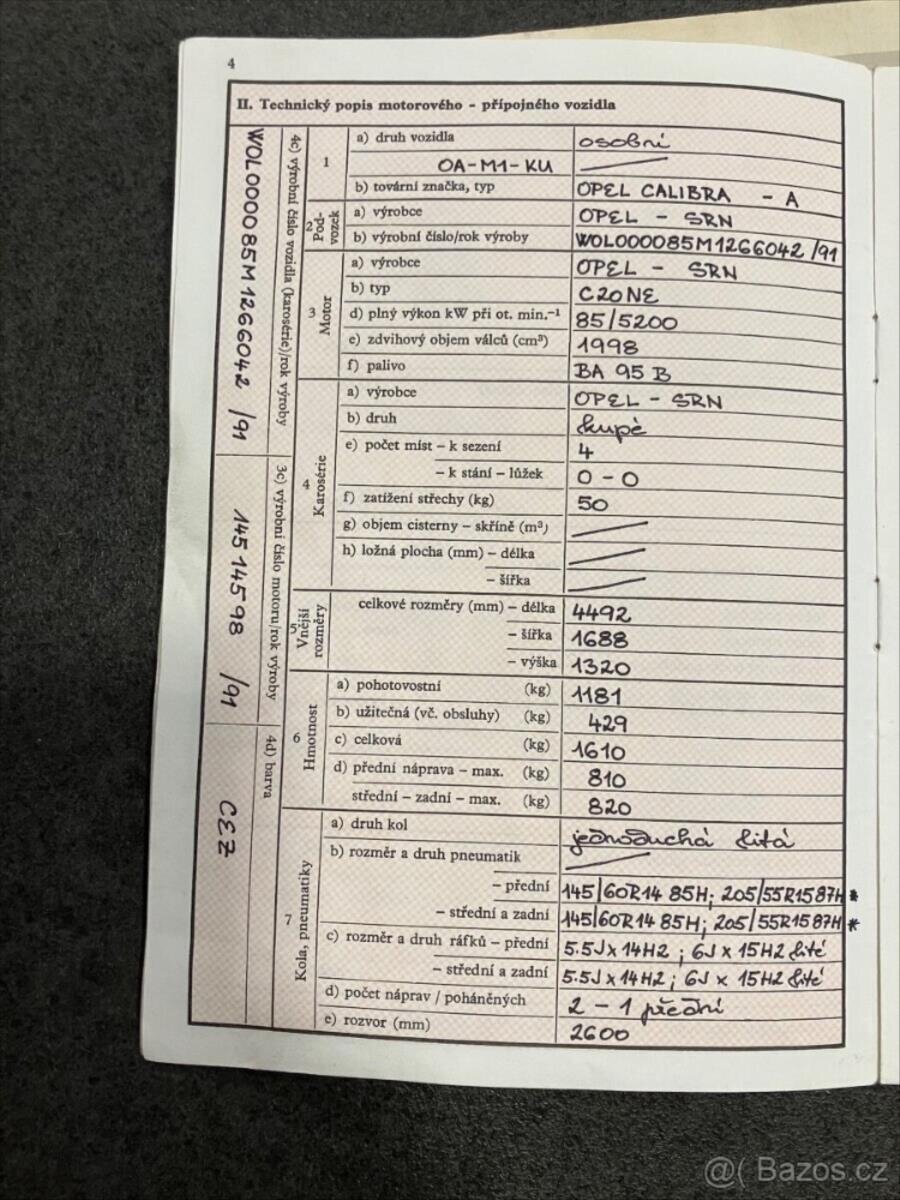 4
II. Technický popis motorového - přípojného vozidla
4c) výrobní číslo vozidla (karosérie)/rok výroby
WOL000085M1266042 /91
3c) výrobní číslo motoru/rok výroby
14514598 /91
4d) barva
CEZ
1
a) druh vozidla osobní
OA-M1-KU
b) tovární značka, typ OPEL CALIBRA - A
2 Pod-
vozek
a) výrobce OPEL - SRN
b) výrobní číslo/rok výroby WOL000085M1266042/91
3
Motor
a) výrobce OPEL - SRN
b) typ C20NE
d) plný výkon kW při ot. min.⁻¹ 85/5200
e) zdvihový objem válců (cm³) 1998
f) palivo BA 95 B
4
Karosérie
a) výrobce OPEL - SRN
b) druh kupé
e) počet míst – k sezení 4
– k stání – lůžek 0 - 0
f) zatížení střechy (kg) 50
g) objem cisterny – skříně (m³)
h) ložná plocha (mm) – délka
– šířka
5
Vnější
rozměry
celkové rozměry (mm) – délka 4492
– šířka 1688
– výška 1320
6
Hmotnost
a) pohotovostní (kg) 1181
b) užitečná (vč. obsluhy) (kg) 429
c) celková (kg) 1610
d) přední náprava – max. (kg) 810
střední – zadní – max. (kg) 820
7
Kola, pneumatiky
a) druh kol jednoduchá litá
b) rozměr a druh pneumatik
– přední 145/60R14 85H; 205/55R1587H*
– střední a zadní 145/60R14 85H; 205/55R1587H*
c) rozměr a druh ráfků – přední 5.5Jx14H2 ; 6J x 15H2 lité
– střední a zadní 5.5Jx14H2 ; 6J x 15H2 lité
d) počet náprav / poháněných 2 - 1 přední
e) rozvor (mm) 2600
@( Bazos.cz